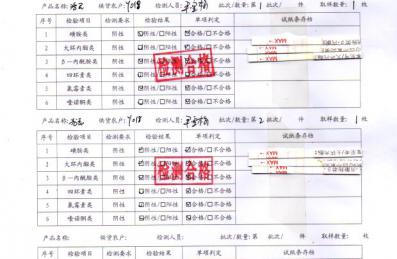 产品名称: 供货农户: Y018 检测人员: 批次/数量: 第1批次/ 件 取样数量: 1 枚
序号 检验项目 检测要求 检验结果 单项判定 试纸条存档
1 磺胺类 阴性 ☑阴性/☐阳性 ☑合格/☐不合格
2 大环内酯类 阴性 ☑阴性/☐阳性 ☑合格/☐不合格
3 β一内酰胺类 阴性 ☑阴性/☐阳性 ☑合格/☐不合格
4 四环素类 阴性 ☑阴性/☐阳性 ☑合格/☐不合格
5 氯霉素类 阴性 ☑阴性/☐阳性 ☑合格/☐不合格
6 喹诺酮类 阴性 ☑阴性/☐阳性 ☑合格/☐不合格
检测合格
MAX
MAX
产品名称: 供货农户: Y018 检测人员: 批次/数量: 第2批次/ 件 取样数量: 1 枚
序号 检验项目 检测要求 检验结果 单项判定 试纸条存档
1 磺胺类 阴性 ☑阴性/☐阳性 ☑合格/☐不合格
2 大环内酯类 阴性 ☑阴性/☐阳性 ☑合格/☐不合格
3 β一内酰胺类 阴性 ☑阴性/☐阳性 ☑合格/☐不合格
4 四环素类 阴性 ☑阴性/☐阳性 ☑合格/☐不合格
5 氯霉素类 阴性 ☑阴性/☐阳性 ☑合格/☐不合格
6 喹诺酮类 阴性 ☑阴性/☐阳性 ☑合格/☐不合格
检测合格
MAX
MAX
产品名称: 供货农户: 检测人员: 批次/数量: 第 批次/ 件 取样数量: 枚
序号 检验项目 检测要求 检验结果 单项判定 试纸条存档